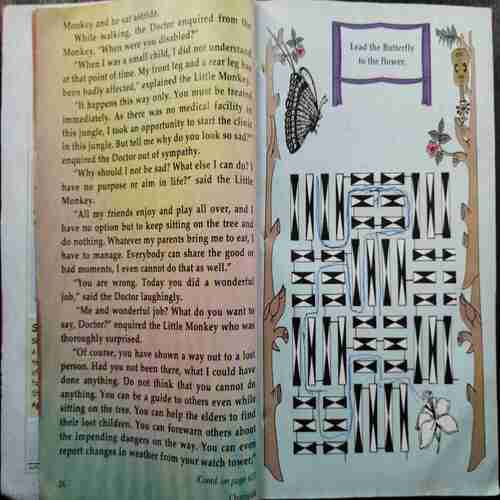 Monkey and he sat astride.
While walking, the Doctor enquired from the
Monkey, "When were you disabled?"
"When I was a small child, I did not understand
at that point of time. My front leg and a rear leg had
been badly affected," explained the Little Monkey.
"It happens this way only. You must be treated
immediately. As there was no medical facility in
this jungle, I took an opportunity to start the clinic
in this jungle. But tell me why do you look so sad?"
enquired the Doctor out of sympathy.
"Why should I not be sad? What else I can do? I
have no purpose or aim in life?" said the Little
Monkey.
"All my friends enjoy and play all over, and I
have no option but to keep sitting on the tree and
do nothing. Whatever my parents bring me to eat, I
have to manage. Everybody can share the good or
bad moments, I even cannot do that as well."
"You are wrong. Today you did a wonderful
job," said the Doctor laughingly.
"Me and wonderful job? What do you want to
say, Doctor?" enquired the Little Monkey who was
thoroughly surprised.
"Of course, you have shown a way out to a lost
person. Had you not been there, what I could have
done anything. Do not think that you cannot do
anything. You can be a guide to others even while
sitting on the tree. You can help the elders to find
their lost children. You can forewarn others about
the impending dangers on the way. You can even
report changes in weather from your watch tower,"
26
Contd. on page
Lead the Butterfly
to the flower.